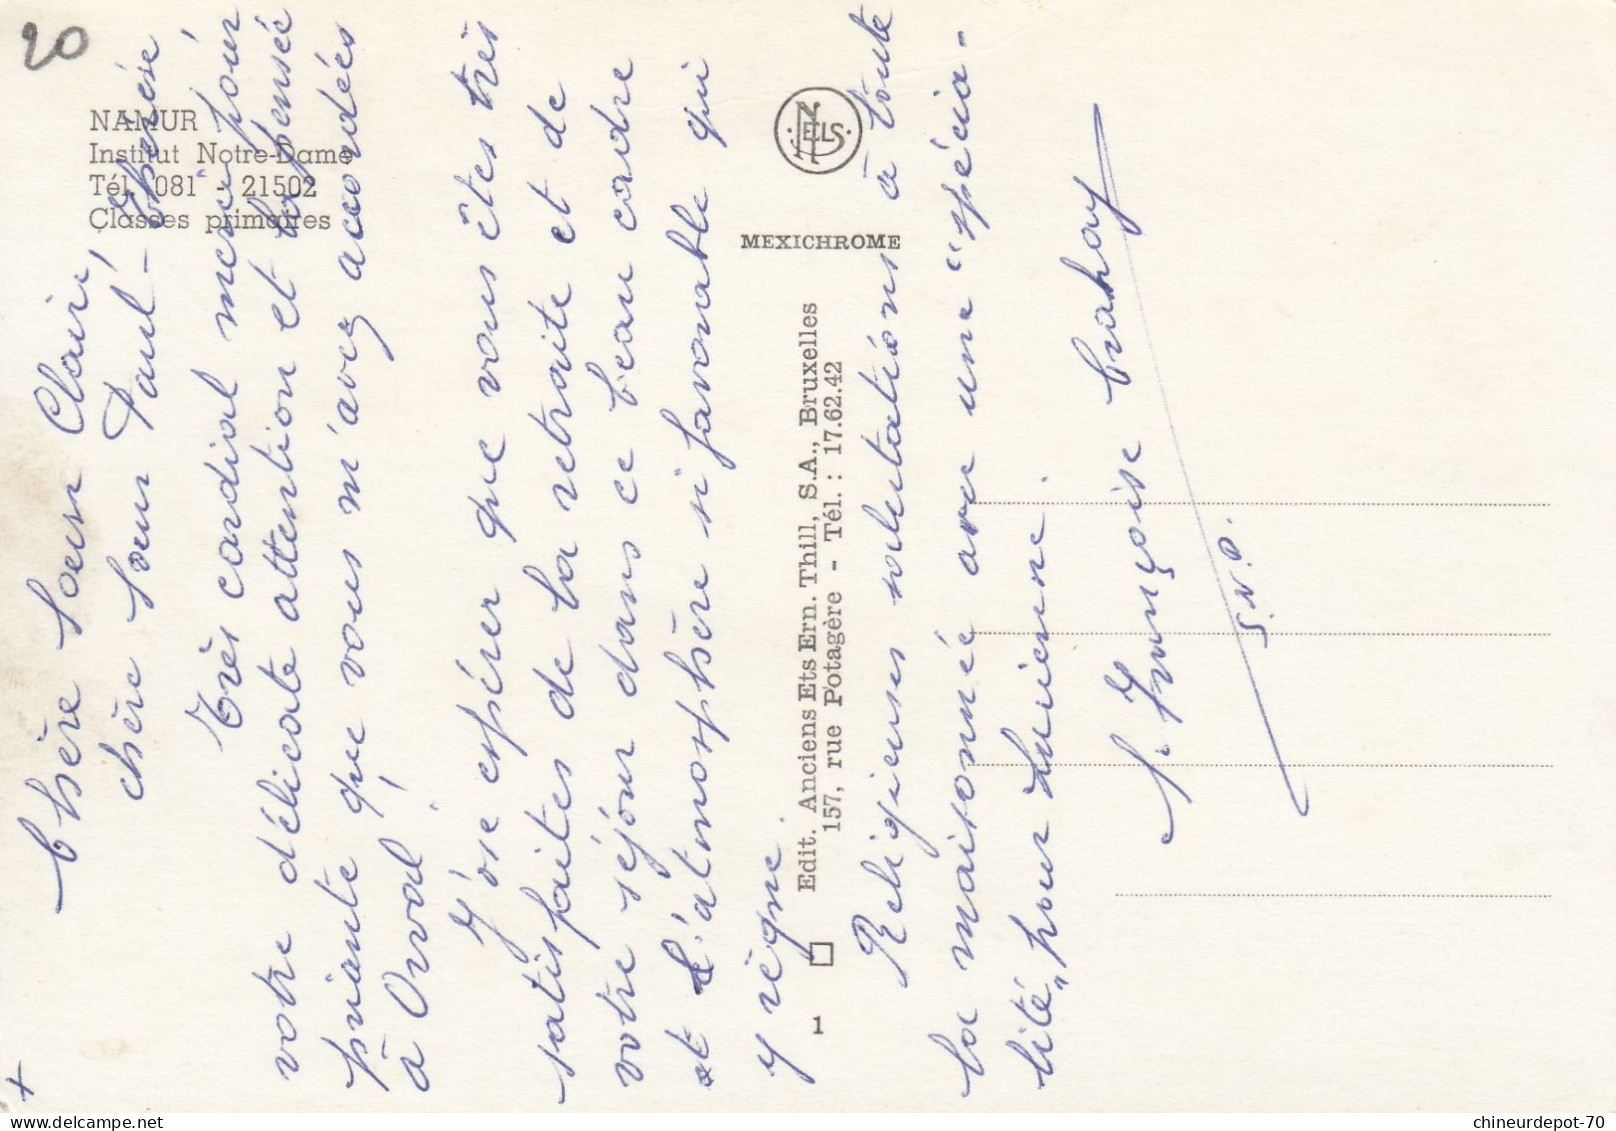 20
NAMUR
Institut Notre-Dame
Tél. 081 - 21502
Classes primaires
NELS
MEXICHROME
Edit. Anciens Ets Ern. Thill, S.A., Bruxelles
157, rue Potagère - Tél. : 17.62.42
1
+
Chère Soeur Claire,
chère Soeur Paul-Thérèse,
Très cordial merci pour
votre délicate attention et la pensée
priante que vous m'avez accordées
à Orval!
J'ose espérer que vous êtes très
satisfaites de la retraite et de
votre séjour dans ce beau cadre
et l'atmosphère si favorable qui
y règne.
Religieuses salutations à toute
la maisonnée avec une "spécia-
lité" pour Lucienne.
S. Françoise
S.N.D.
chineurdepot-70